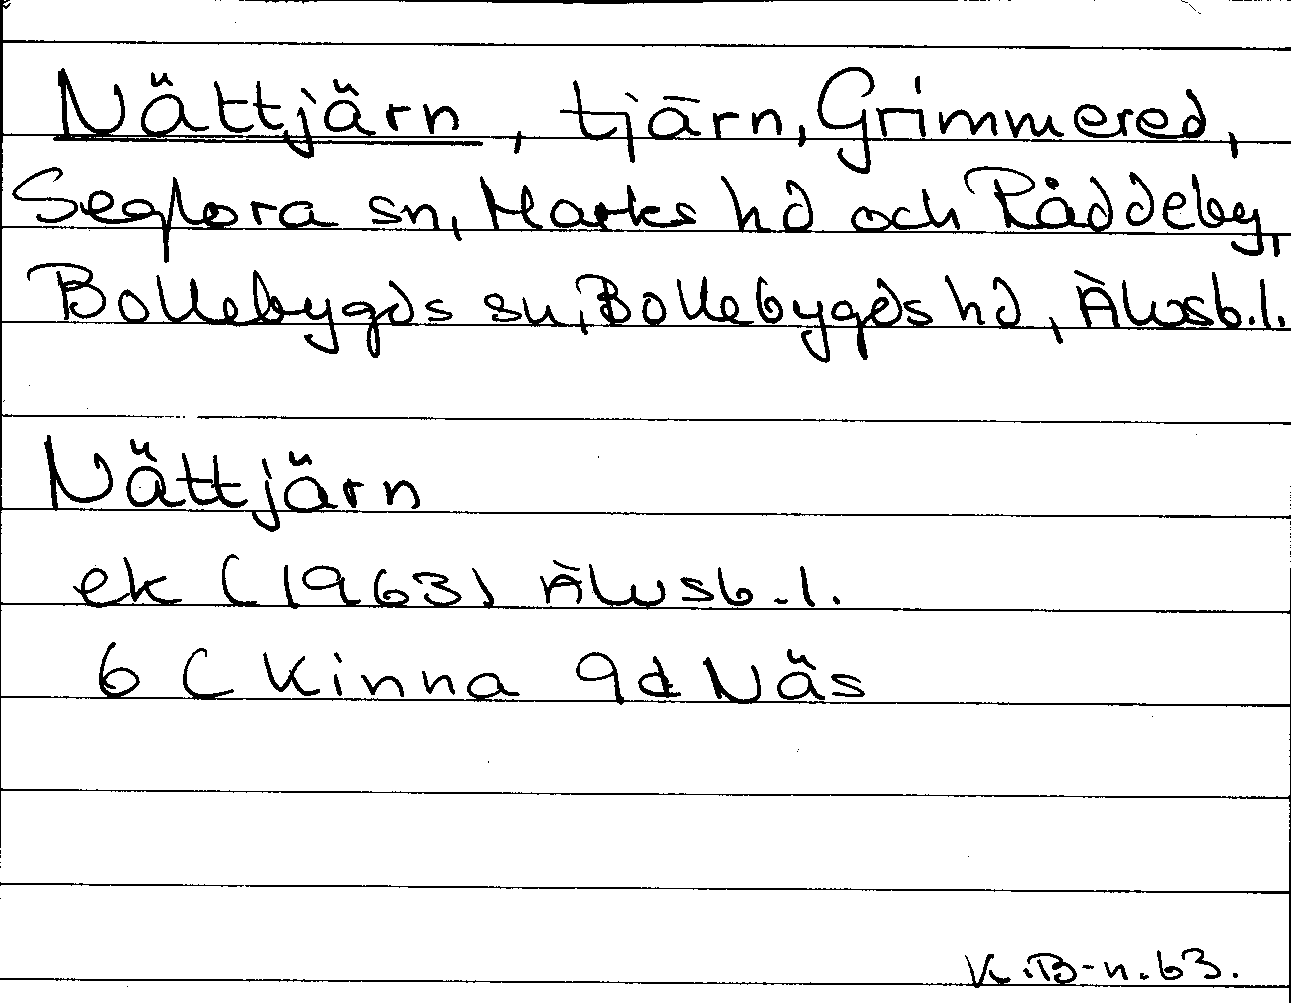 Nättjärn, tjärn, Grimmered,
Seglora sn, Marks hd och Råddeby,
Bollebygds sn, Bollebygds hd, Älvsb.l.
Nättjärn
ek (1963) Älvsb.l.
6 C Kinna 9d Näs
K.B-n.63.